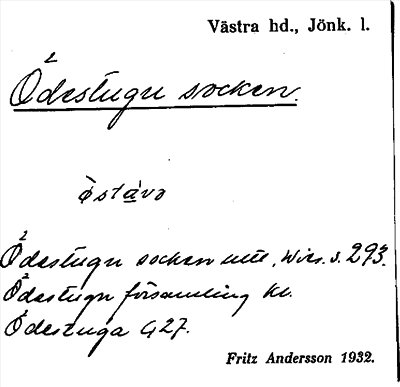 Västra hd., Jönk. l.
2
Ödestugu socken.
östávo
2
Ödestugu socken utt., Wirs. s. 293.
2
Ödestugu församling Kl.
Ödestuga G 27.
Fritz Andersson 1932.